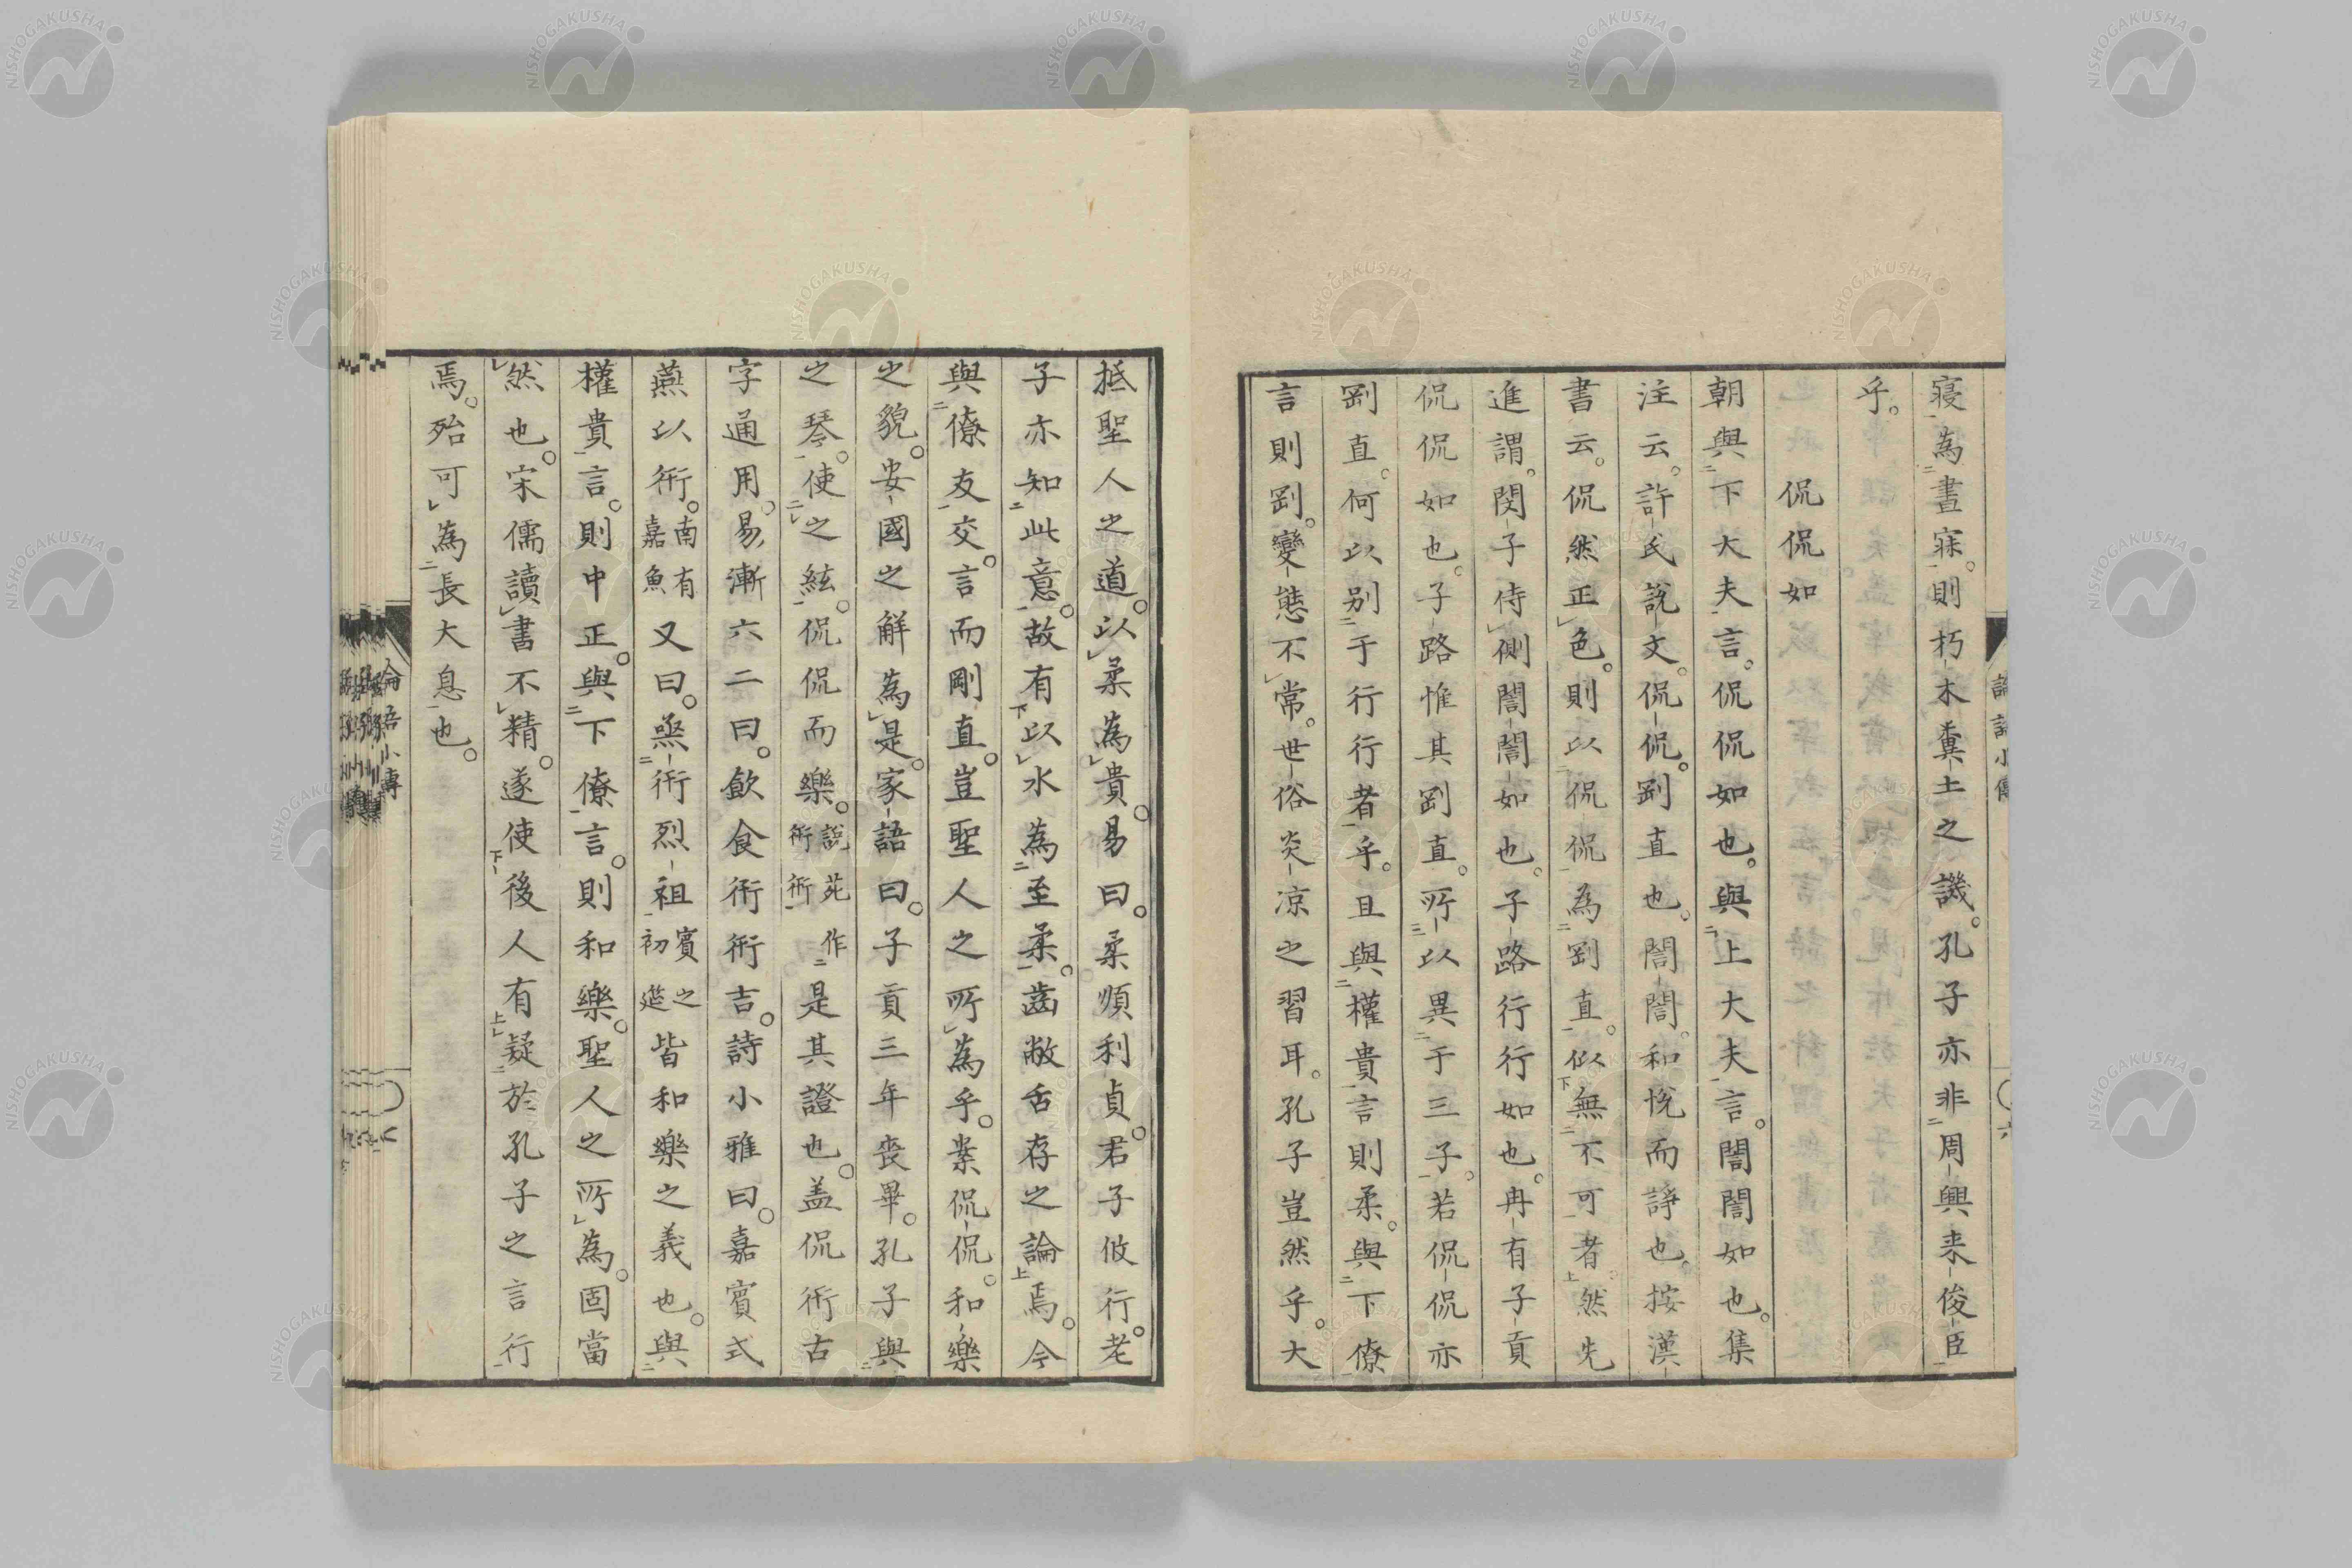 寝為晝寐則朽木糞土之譏孔子亦非周興来俊臣
乎
侃侃如
朝與下大夫言侃侃如也與上大夫言誾誾如也集
注云許氏説文侃侃剛直也誾誾和悅而諍也按漢
書云侃然正色則以侃侃為剛直似無不可者然先
進謂閔子侍側誾誾如也子路行行如也冉有子貢
侃侃如也子路惟其剛直所以異于三子若侃侃亦
剛直何以別于行行者乎且與權貴言則柔與下僚
言則剛變態不常世俗炎凉之習耳孔子豈然乎大
抵聖人之道以柔為貴易曰柔順利貞君子攸行老
子亦知此意故有以水為至柔齒敝舌存之論焉今
與僚友交言而剛直豈聖人之所為乎案侃侃和樂
之貌安國之解為是家語曰子貢三年喪畢孔子與
之琴使之絃侃侃而樂説苑作衎衎是其證也盖侃衎古
字通用易漸六二曰飲食衎衎吉詩小雅曰嘉賓式
燕以衎南有嘉魚又曰烝衎烈祖賓之初筵皆和樂之義也與
權貴言則中正與下僚言則和樂聖人之所為固當
然也宋儒讀書不精遂使後人有疑於孔子之言行
焉殆可為長大息也
論語小傳